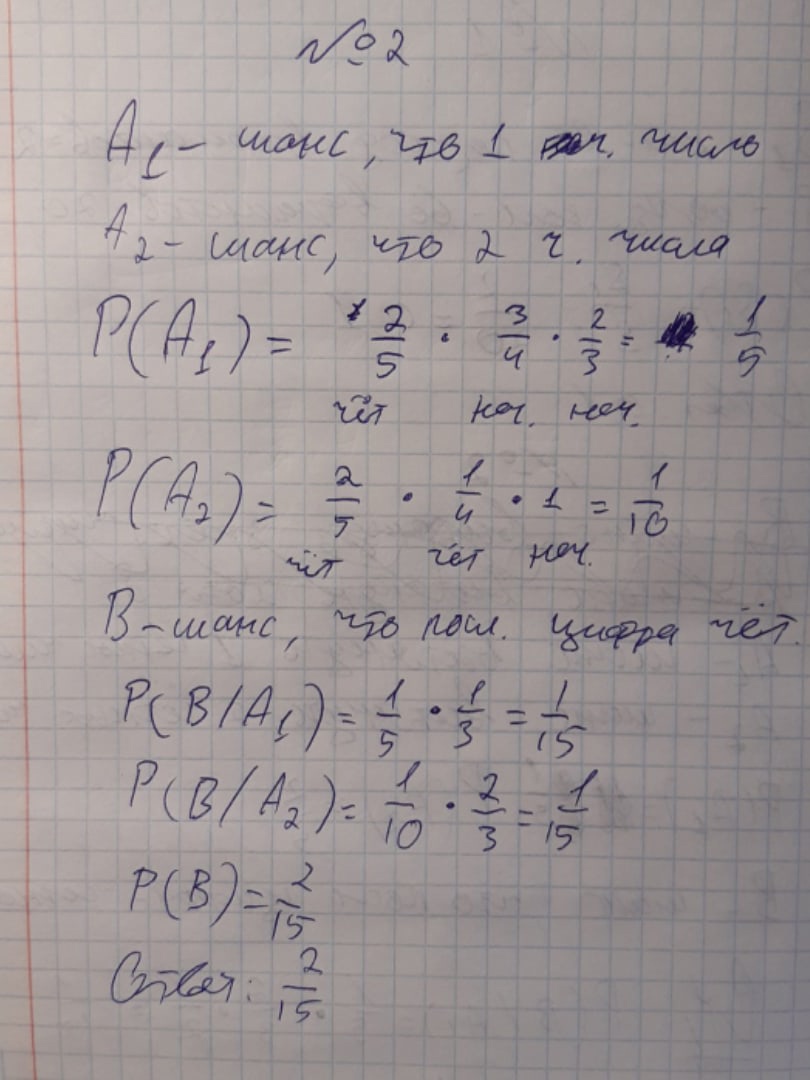 №2
A₁ – шанс, что 1 ч. число
A₂ – шанс, что 2 ч. числа
P(A₁) = 2/5 · 3/4 · 2/3 = 1/5
чёт неч. неч.
P(A₂) = 2/5 · 1/4 · 1 = 1/10
чёт чёт неч.
B – шанс, что посл. цифра чёт.
P(B/A₁) = 1/5 · 1/3 = 1/15
P(B/A₂) = 1/10 · 2/3 = 1/15
P(B) = 2/15
Ответ: 2/15